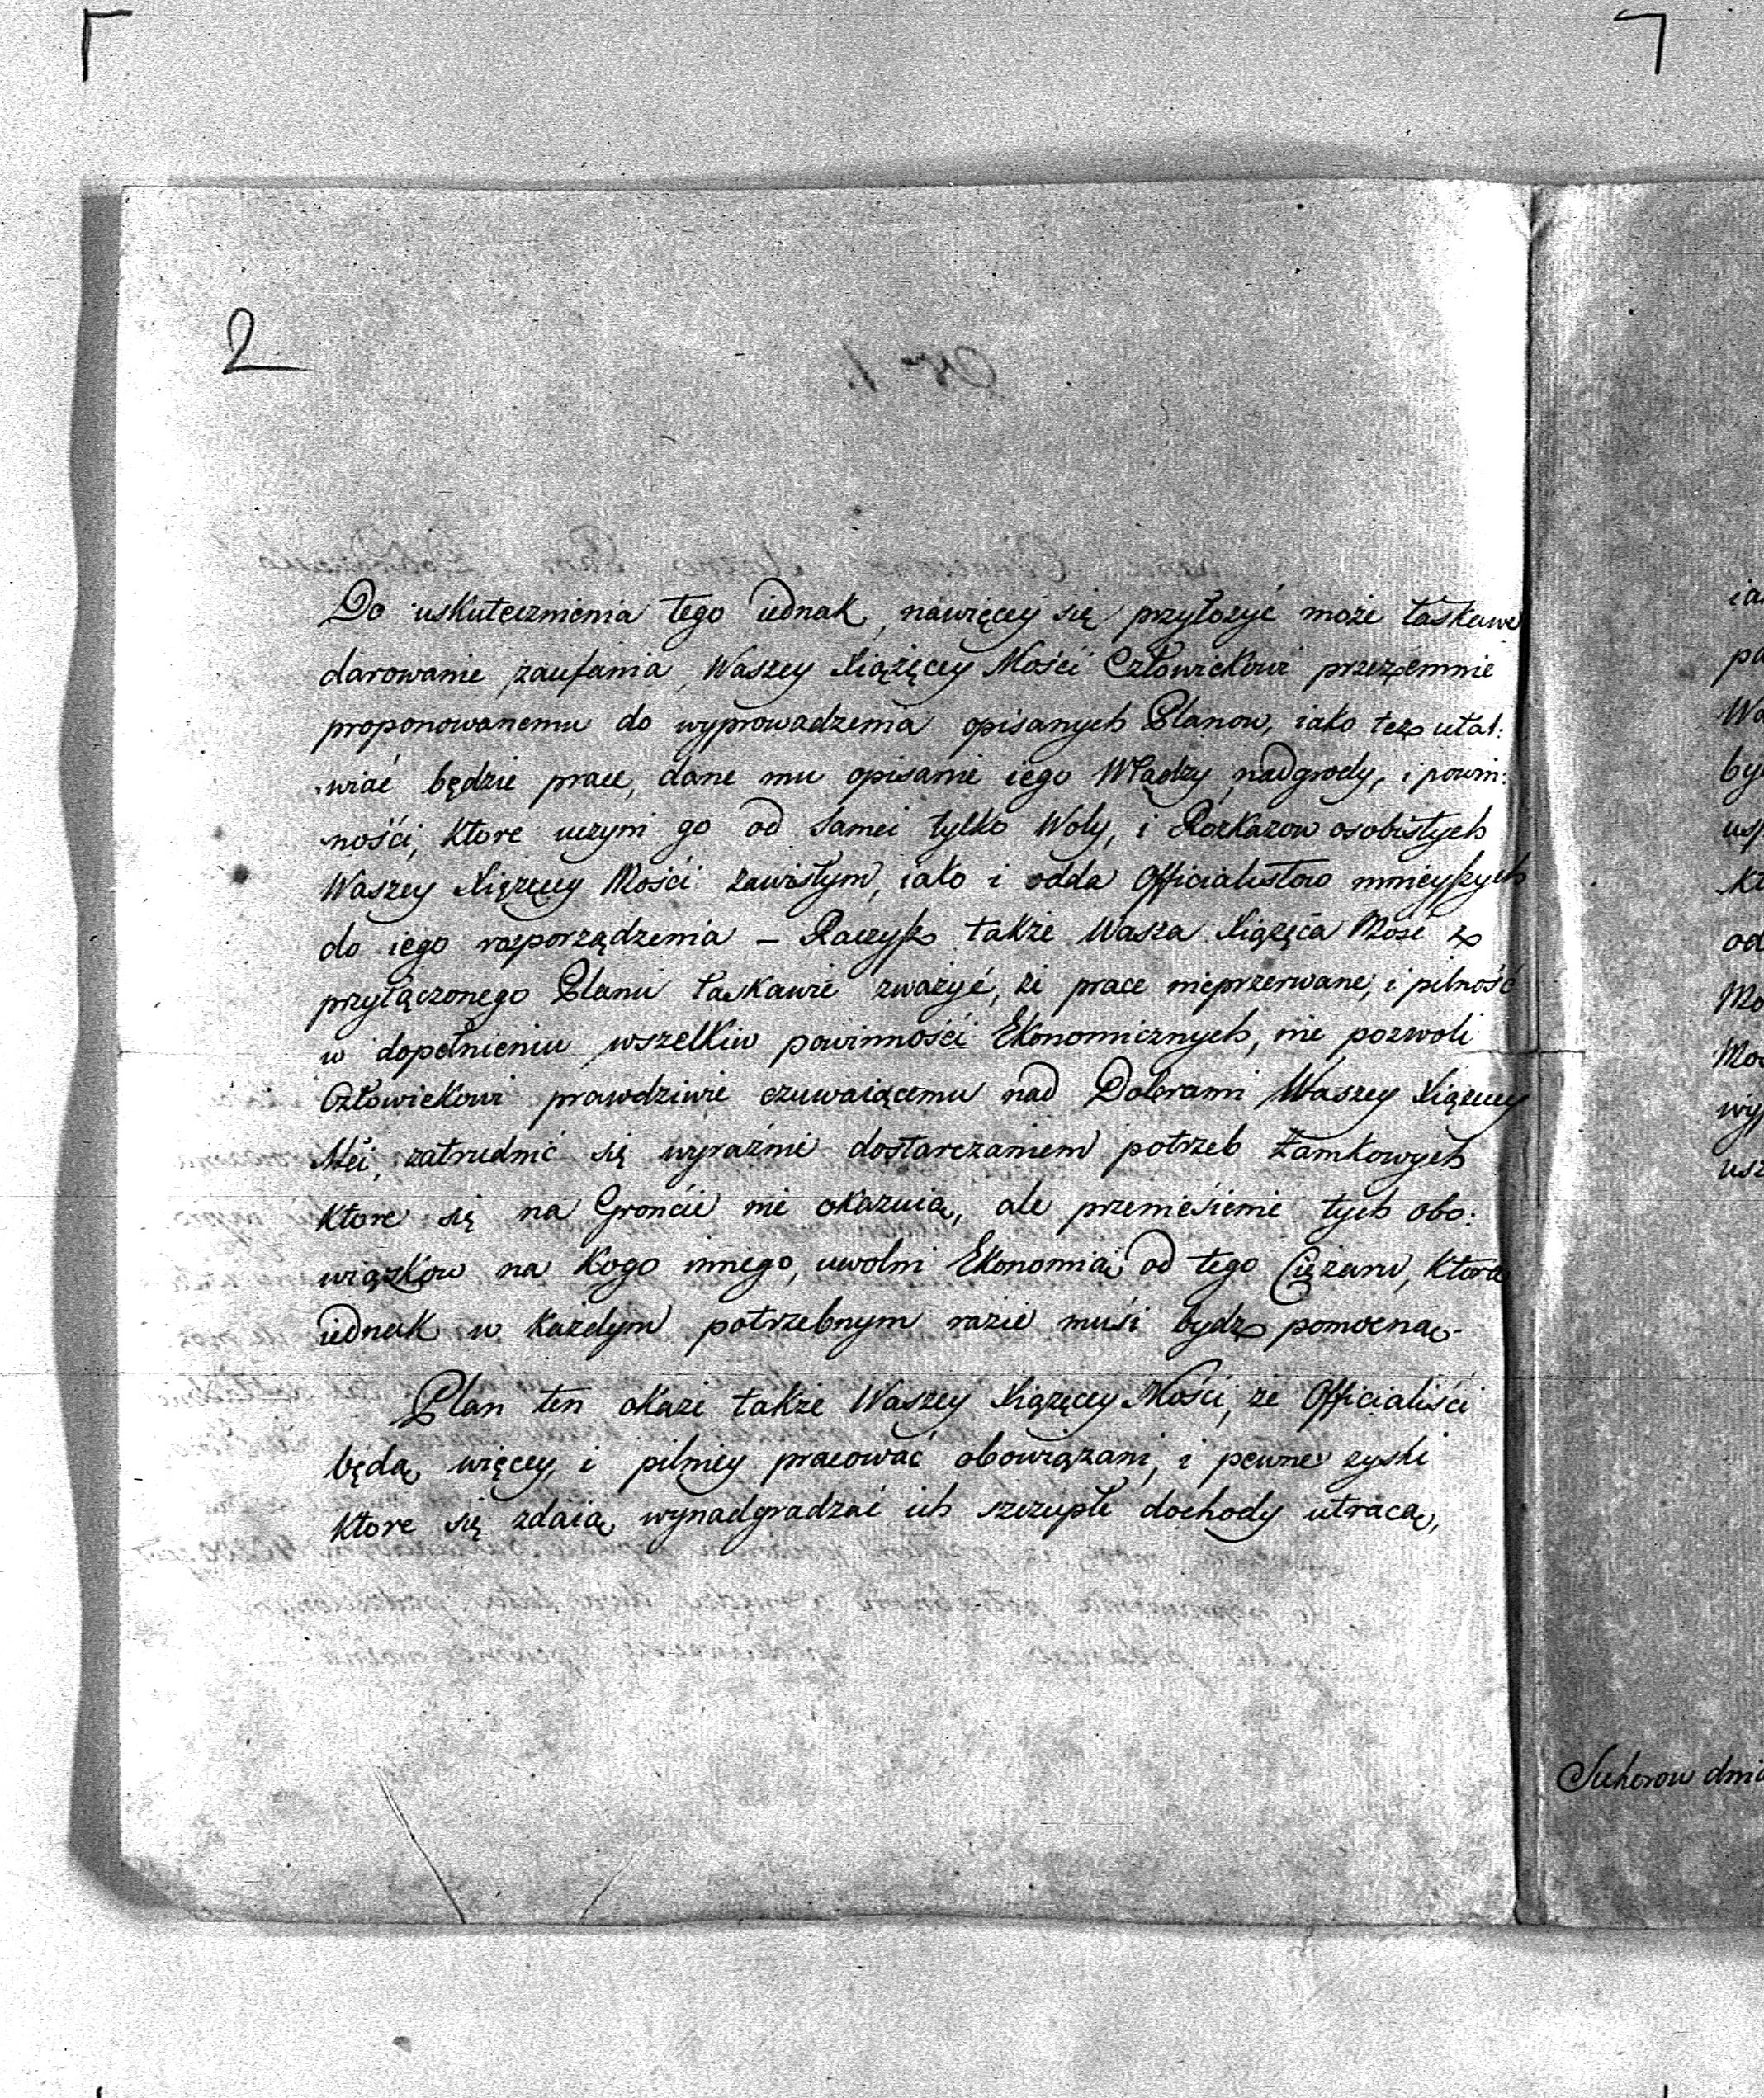 2
Do uskutecznienia tego iednak, nawięcey się przyłożyć może łaskawe
darowanie zaufania, Waszey Xiążęcey Mości Człowiekowi przezemnie
proponowanemu do wyprowadzenia opisanych Planow, iako też ułat:
wiać będzie prace, dane mu opisanie iego Władzy, nadgrody, i powin:
ności, ktore uczyni go od samei tylko Woly, i Rozkazow osobistych
Waszey Xiążęcey Mości zawisłym, iako i odda Officialistow mnieyszych
do iego rozporządzenia – Raczysz także Wasza Xiążęca Mość z
przyłączonego Planu łaskawie zważyć, że prace nieprzerwane, i pilność
w dopełnieniu wszelkiw powinności Ekonomicznych, nie pozwoli
Człowiekowi prawdziwie czuwaiącemu nad Dobrami Waszey Xiążęcey
Mci, zatrudnić się wyraźnie dostarczaniem potrzeb Zamkowych
ktore się na Gronćie nie okazuią, ale przenieśienie tych obo:
wiązkow na kogo innego, uwolni Ekonomią od tego Ciężaru, ktora
iednak w każdym potrzebnym razie muśi bydz pomocną.
Plan ten okaże także Waszey Xiążęcey Mości, że Officialiści
będą więcey, i pilniey pracować obowiązani, i pewne zyski
ktore się zdaią wynadgradzać ich szczupłe dochody utracą,
Sucherow dnia